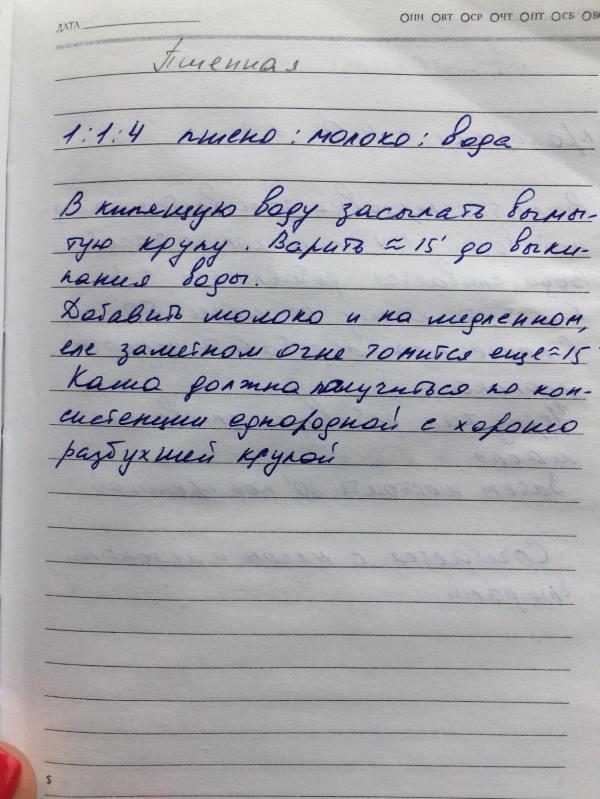 ДАТА
ПН ВТ СР ЧТ ПТ СБ
Пшенная
1:1:4 пшено : молоко : вода
В кипящую воду засыпать вымы-
тую крупу. Варить ≈ 15' до выки-
пания воды.
Добавить молоко и на медленном,
еле заметном огне томится еще ≈ 15'
Каша должна получиться по кон-
систенции однородной с хорошо
разбухшей крупой